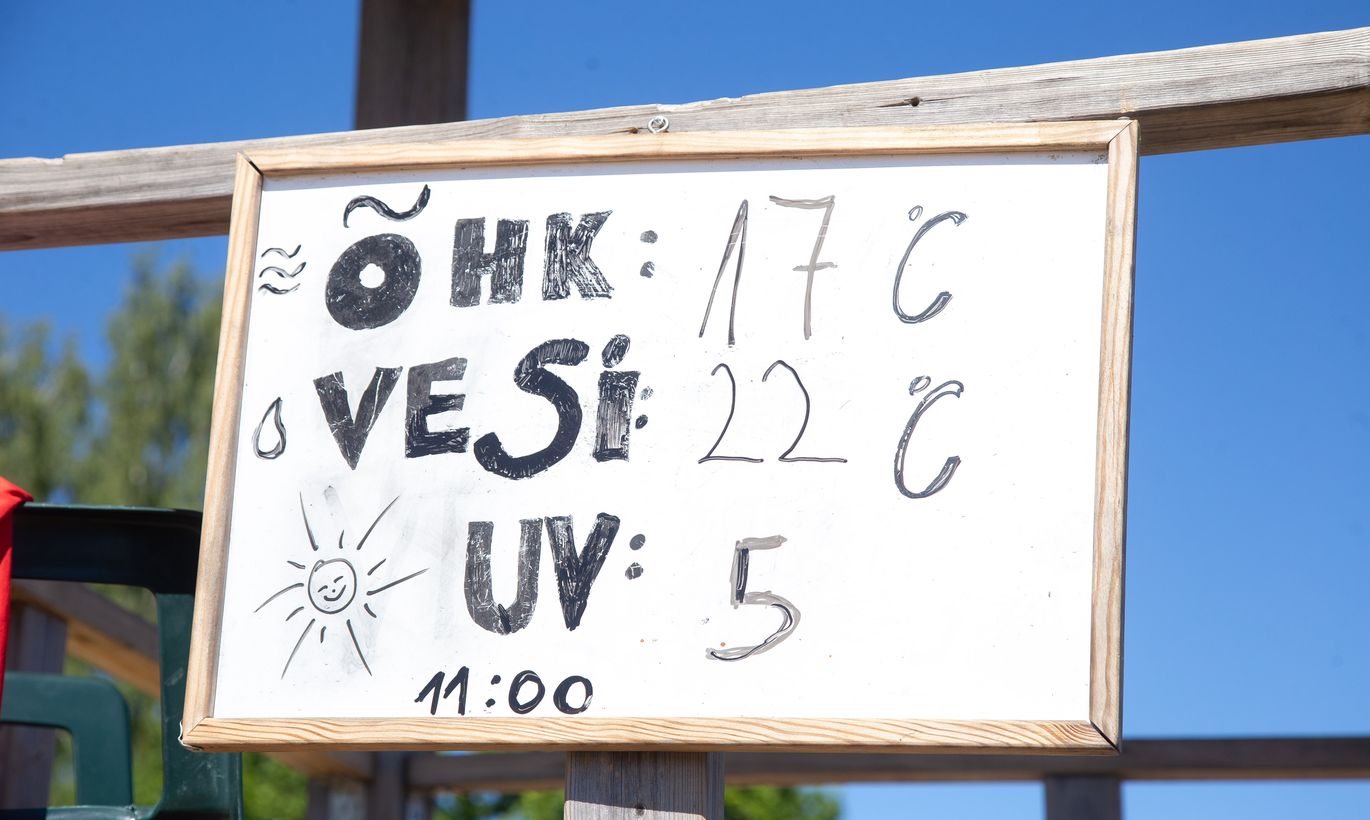 ÕHK: 17 °C
VESi: 22 °C
UV: 5
11:00